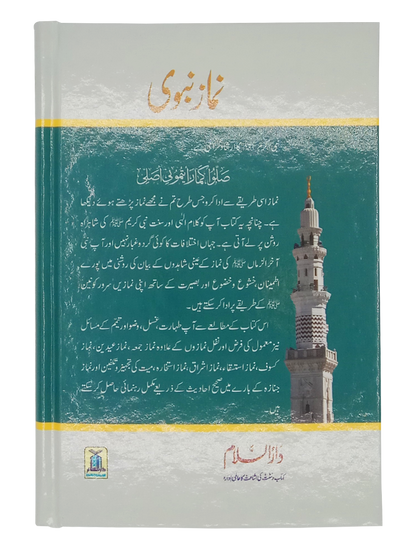 نماز نبوی
نبی کریم
صلوا کما رأیتمونی أصلی
نماز اسی طریقے سے ادا کرو جس طرح تم نے مجھے نماز پڑھتے ہوئے دیکھا
ہے۔ چنانچہ یہ کتاب آپ کو کلام الٰہی اور سنت نبی کریم ﷺ کی شاہراہ
روشن پر لے آتی ہے۔ جہاں اختلافات کا کوئی گرد و غبار نہیں اور آپ نبی
آخر الزماں ﷺ کی نماز کے عینی شاہدوں کے بیان کی روشنی میں پورے
اطمینان، خشوع و خضوع اور بصیرت کے ساتھ اپنی نمازیں سرور کونین
ﷺ کے طریقے پر ادا کر سکتے ہیں۔
اس کتاب کے مطالعے سے آپ طہارت، غسل، وضو اور تیمم کے مسائل
نیز معمول کی فرض اور نفل نمازوں کے علاوہ نماز جمعہ، نماز عیدین، نماز
کسوف، نماز استسقاء، نماز اشراق، نماز استخارہ، میت کی تجہیز و تکفین اور نماز
جنازہ کے بارے میں صحیح احادیث کے ذریعے مکمل رہنمائی حاصل کر سکتے
ہیں۔
دارالسلام
کتاب و سنت کی اشاعت کا عالمی ادارہ
دارالسلام